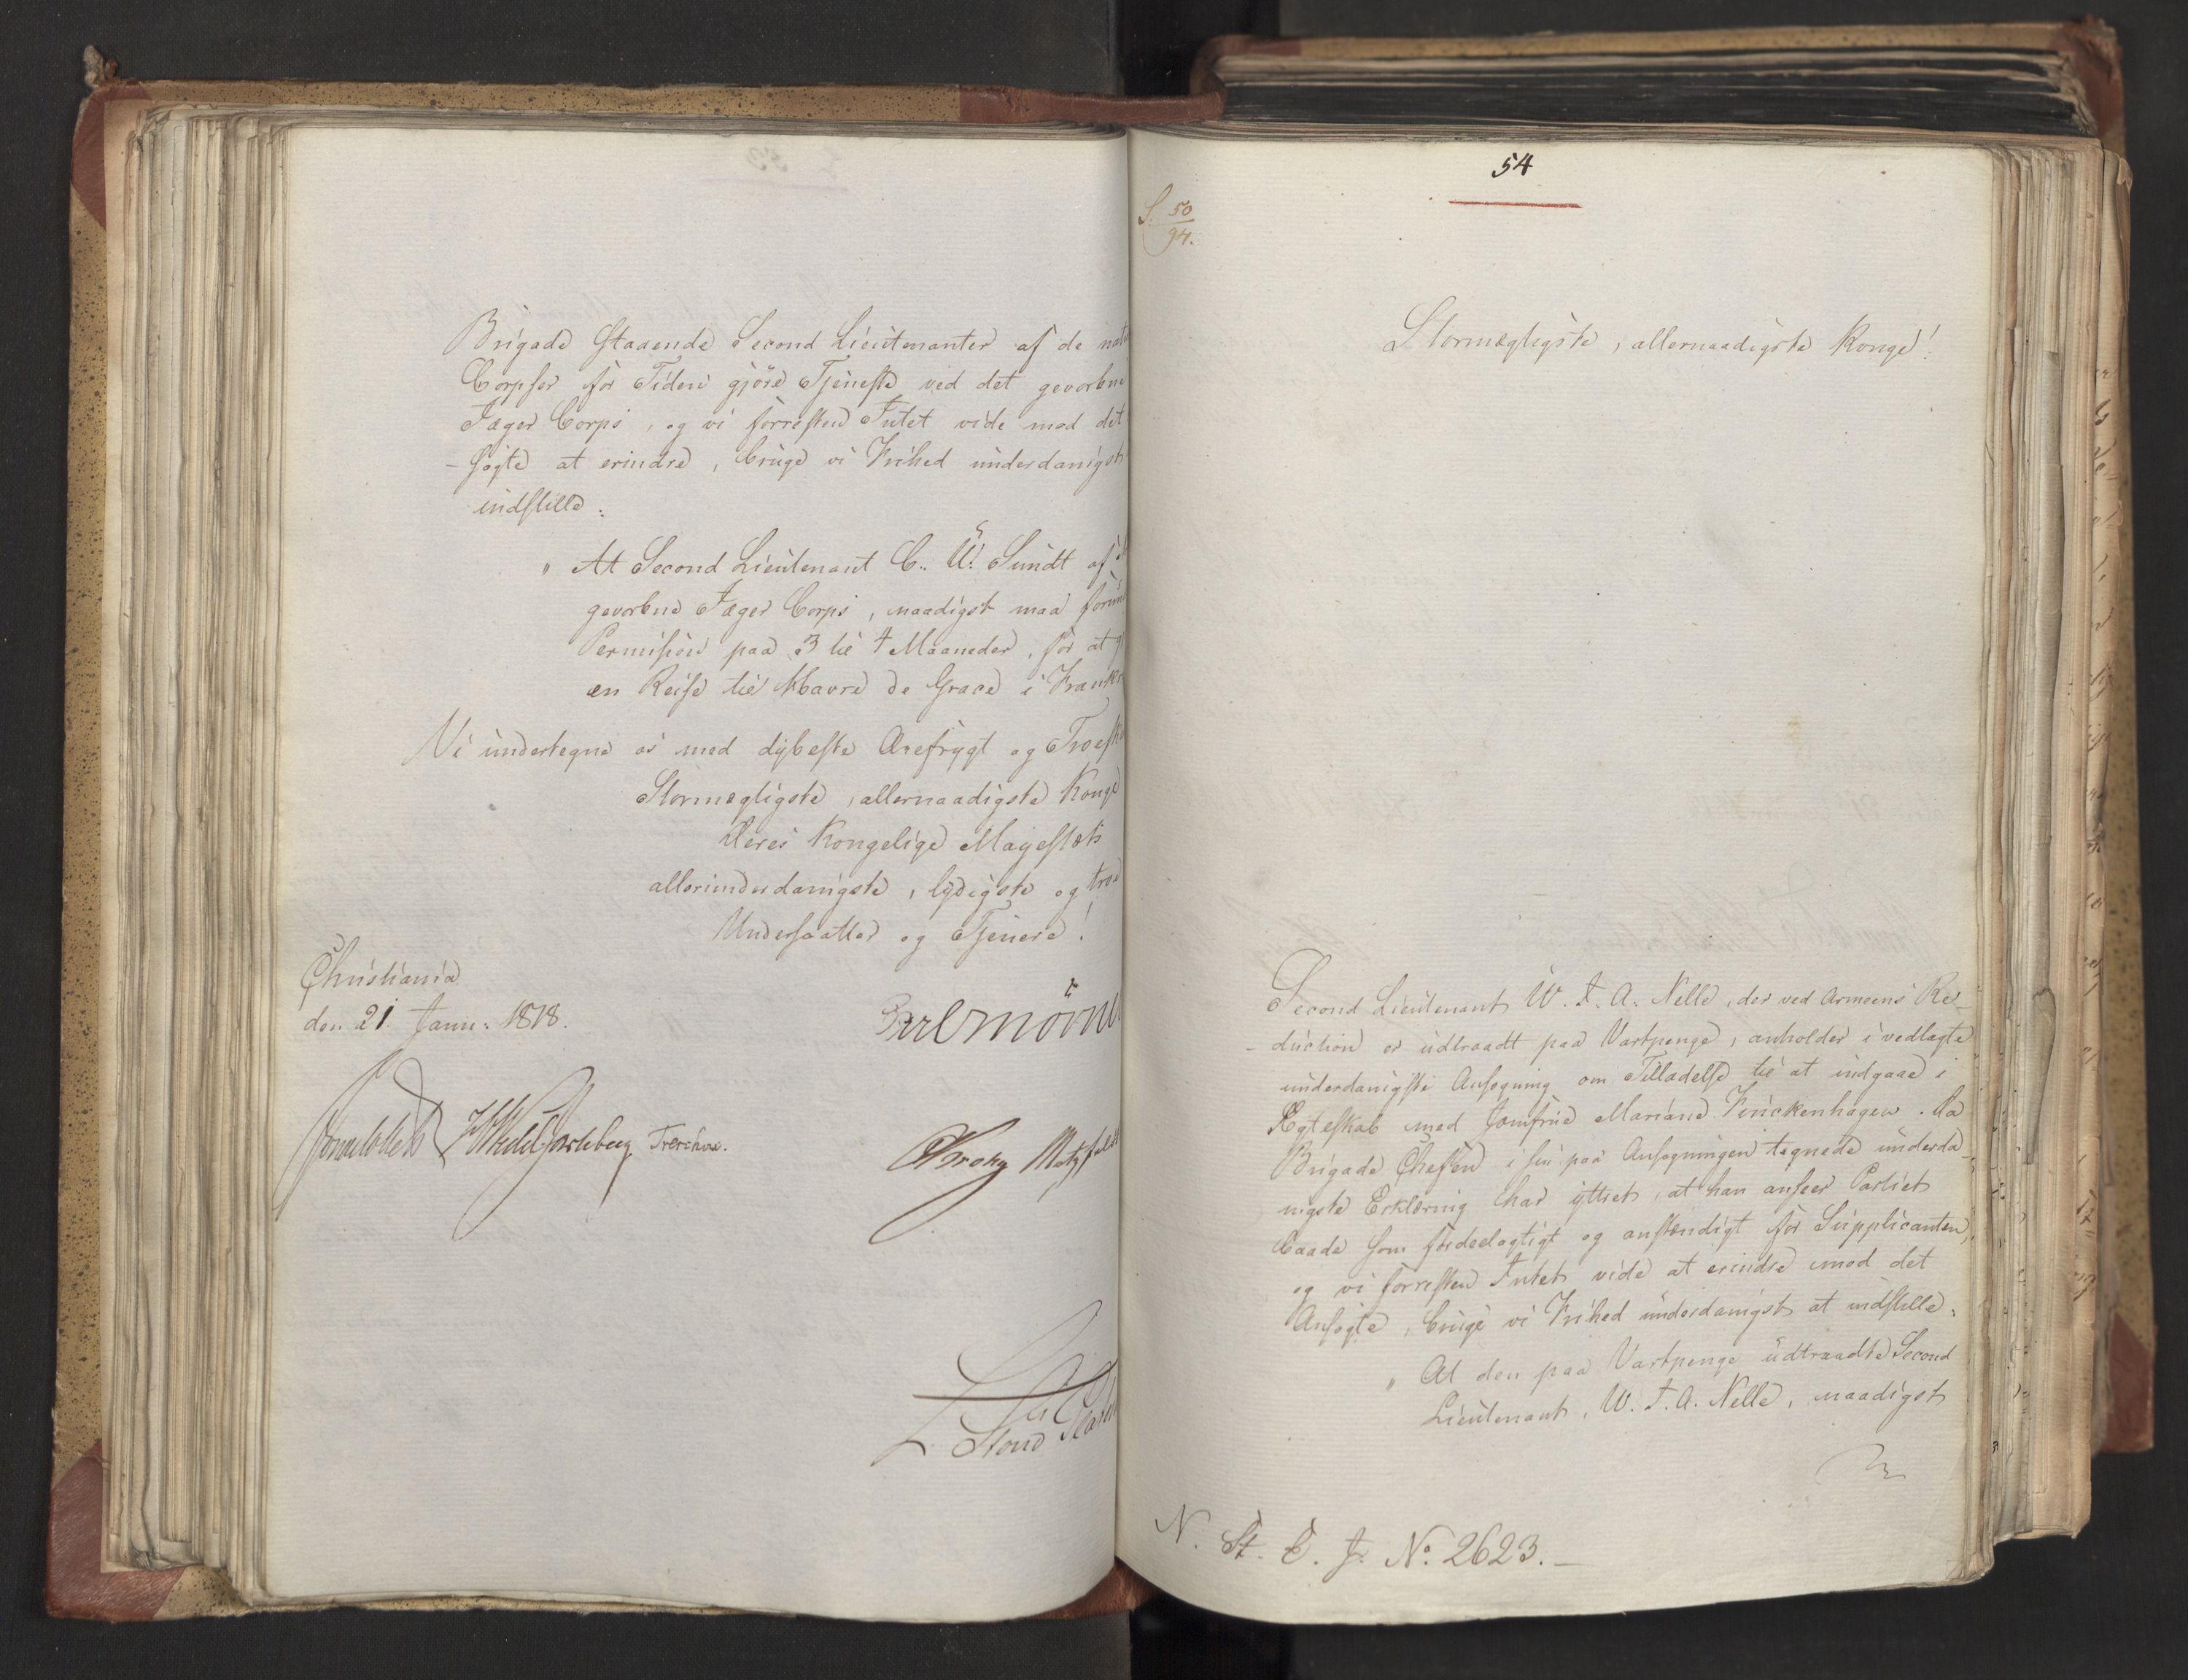 Brigade staaende Second Lieutenanter af de
Corpser for Tiden gjöre Tjeneste ved det gevorbne
Jæger Corps, og vi forresten Intet vide mod det
-søgte at erindre, bruge vi Frihed underdanigst
indstille:
" At Second Lieutenant C. U. Sundt af
gevorbne Jæger Corps, naadigst maa
Permission paa 3 til 4 Maaneder, for at
en Reise til Havre de Grace i
Vi undertegne os med dybeste Ærefrygt og
Stormægtigste, allernaadigste Konge
Deres Kongelige Majestæts
allerunderdanigste, lydigste og troe
Undersaatter og Tjenere!
Christiania
den 21 Janu: 1818.
Mörner
Sommerhielm HWedel Jarlsberg Treschow.
CKrohg Motzfeldt
54
S. 50
94.
Stormægtigste, allernaadigste Konge!
Second Lieutenant W. F. A. Nelle, der ved Armeens Re-
-duction er udtraadt paa Vartpenge, anholder i vedlagte
underdanigste Ansøgning om Tilladelse til at indgaae i
Ægteskab med Jomfrue Mariane Finckenhagen. Da
Brigade Cheffen i sin paa Ansøgningen tegnede underda-
nigste Erklæring har yttret, at han anseer Partiet
baade som fordeelagtigt og anstændigt for Supplicanten,
og vi forresten Intet vide at erindre mod det
Ansøgte, bruge vi Frihed underdanigst at indstille:
" At den paa Vartpenge udtraadte Second
Lieutenant, W. F. A. Nelle, naadigst
N. St. E. J. No. 2623.-